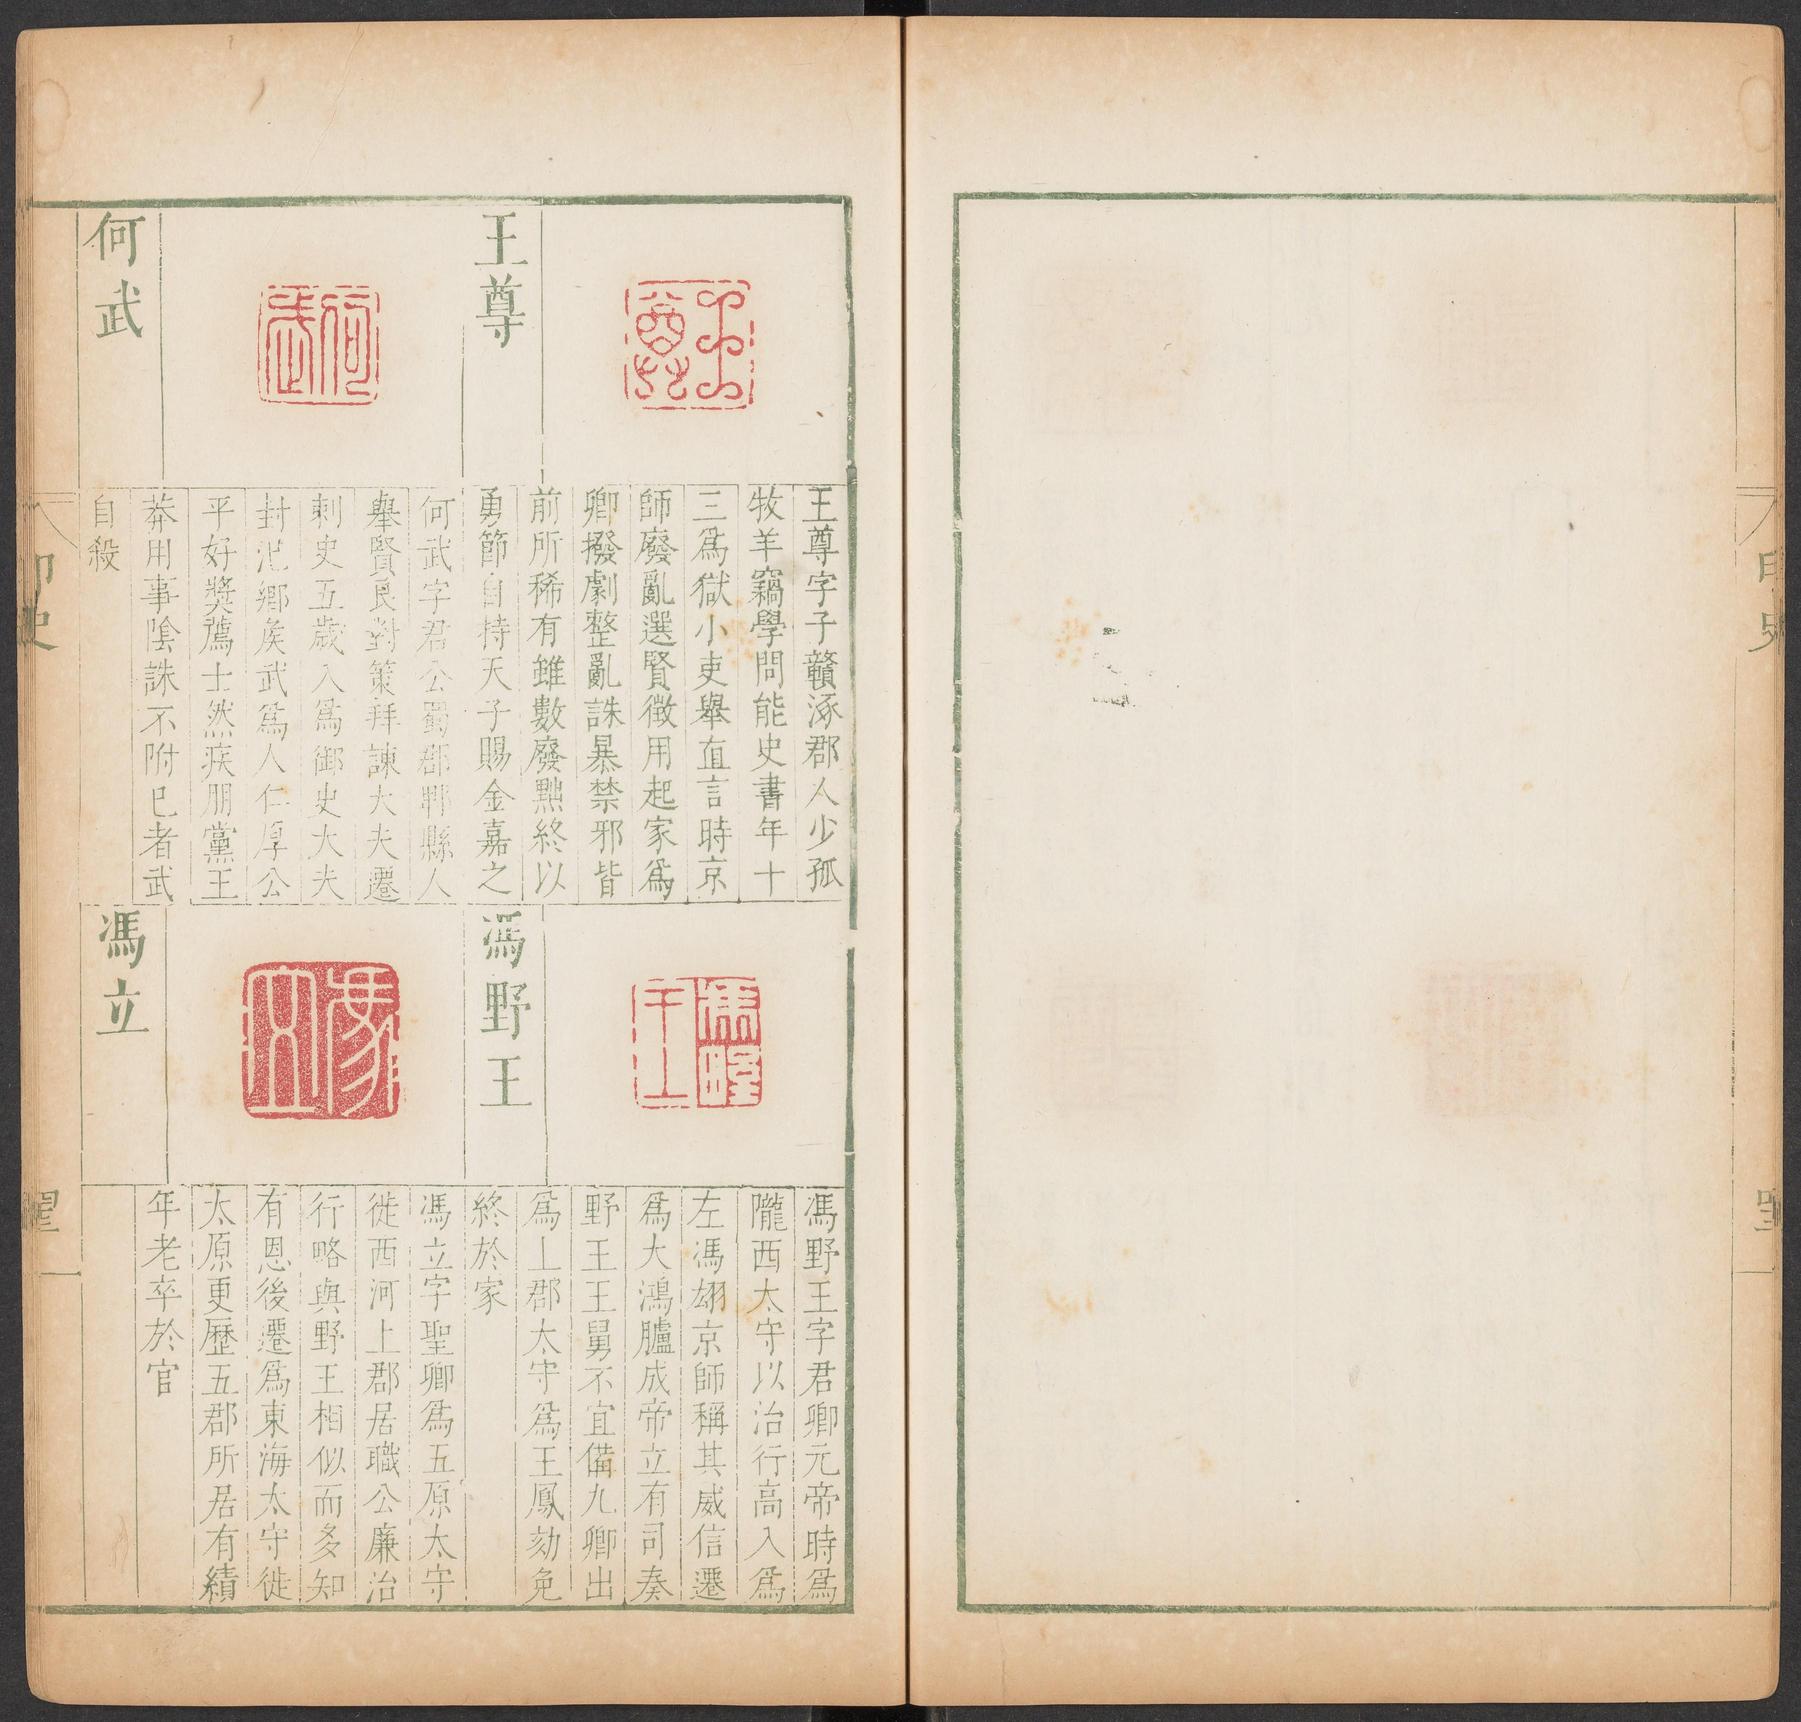 王尊
王尊字子贛涿郡人少孤
牧羊竊學問能史書年十
三爲獄小吏舉直言時京
師廢亂選賢徵用起家爲
卿撥劇整亂誅暴禁邪皆
前所稀有雖數廢黜終以
勇節自持天子賜金嘉之
何武
何武字君公蜀郡郫縣人
舉賢良對策拜諫大夫遷
刺史五歲入爲御史大夫
封氾鄉矦武爲人仁厚公
平好獎薦士然疾朋黨王
莽用事陰誅不附已者武
自殺
馮野王
馮野王字君卿元帝時爲
隴西太守以治行高入爲
左馮翊京師稱其威信遷
爲大鴻臚成帝立有司奏
野王王舅不宜備九卿出
爲上郡太守爲王鳳劾免
終於家
馮立
馮立字聖卿爲五原太守
徙西河上郡居職公廉治
行略與野王相似而多知
有恩後遷爲東海太守徙
太原更歷五郡所居有績
年老卒於官
印史
印史